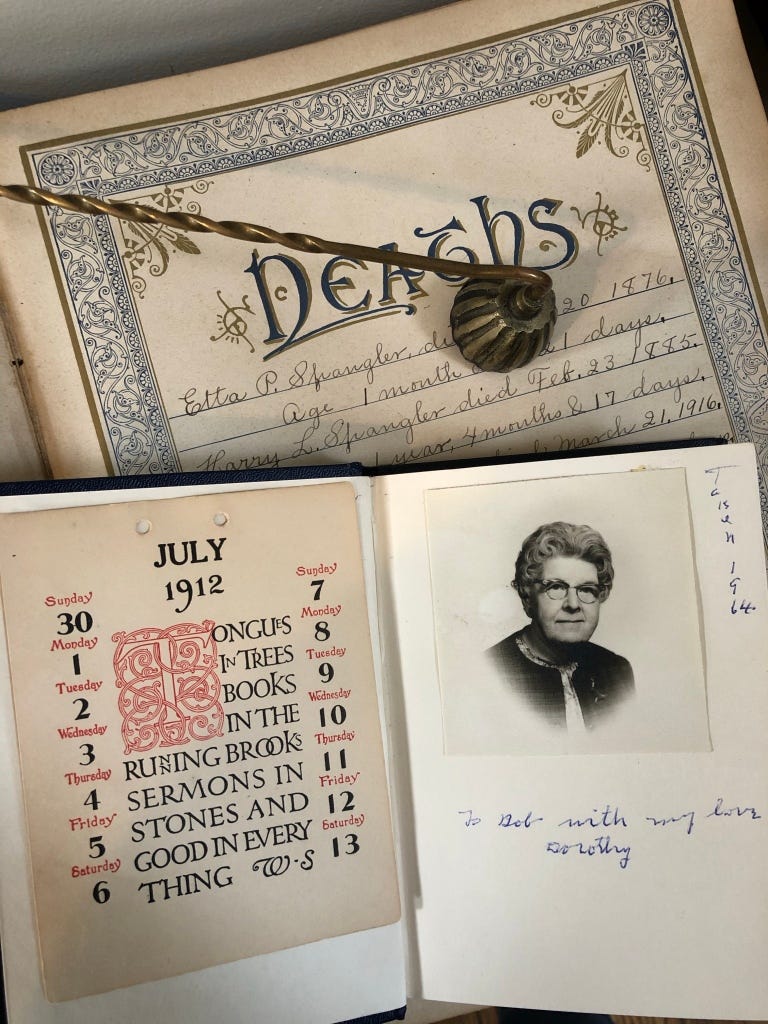 DEATHS
Etta P. Spangler, di 20 1876.
Age 1 month 21 days.
Harry L. Spangler died Feb. 23 1885.
1 year, 4 months & 17 days.
March 21, 1916.
JULY
1912
Sunday
30
Monday
1
Tuesday
2
Wednesday
3
Thursday
4
Friday
5
Saturday
6
TONGUES
IN TREES
BOOKS
IN THE
RUNNING BROOKS
SERMONS IN
STONES AND
GOOD IN EVERY
THING W·S
Sunday
7
Monday
8
Tuesday
9
Wednesday
10
Thursday
11
Friday
12
Saturday
13
Taken 1964
To Bob with my love
Dorothy